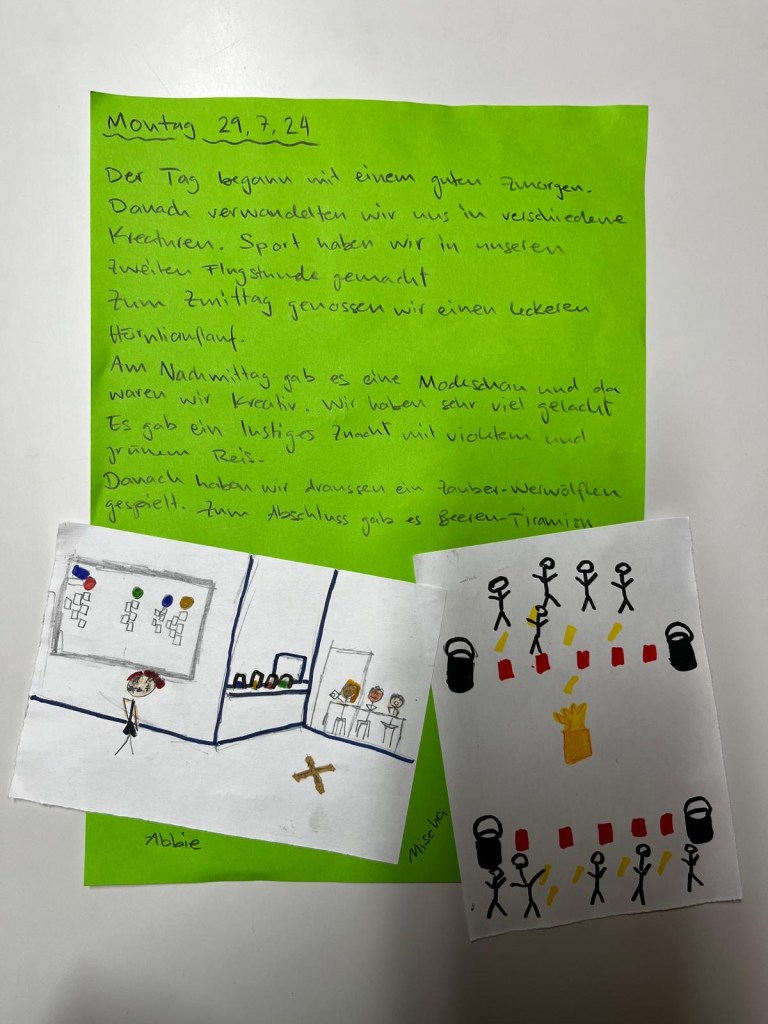 Montag 29.7.24
Der Tag begann mit einem guten Zmorgen.
Danach verwandelten wir uns in verschiedene
Kreaturen. Sport haben wir in unseren
zweiten Flugstunde gemacht
Zum Zmittag genossen wir einen leckeren
Hörnliauflauf.
Am Nachmittag gab es eine Modeschau und da
waren wir kreativ. Wir haben sehr viel gelacht
Es gab ein lustiges Znacht mit violetem und
grünem Reis.
Danach haben wir draussen ein Zauber-Werwölflen
gespielt. Zum Abschluss gab es Beeren-Tiramisu
Abbie
Mischa